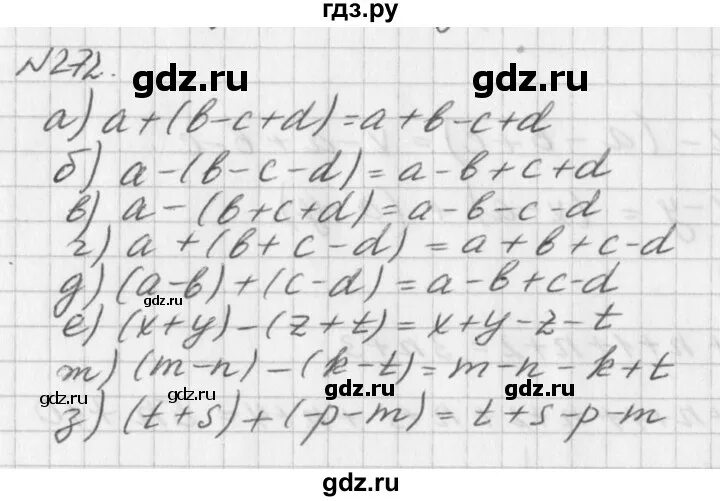 гдз.ру
№272.
gdz.ru gdz.ru
а) a+(b-c+d)=a+b-c+d
б) a-(b-c-d)=a-b+c+d
в) a-(b+c+d)=a-b-c-d
г) a+(b+c-d)=a+b+c-d
д) (a-b)+(c-d)=a-b+c-d
gdz.ru gdz.ru
е) (x+y)-(z+t)=x+y-z-t
ж) (m-n)-(k-t)=m-n-k+t
gdz.ru gdz.ru gdz.ru
з) (t+s)+(-p-m)=t+s-p-m
gdz.ru gdz.ru
gdz.ru